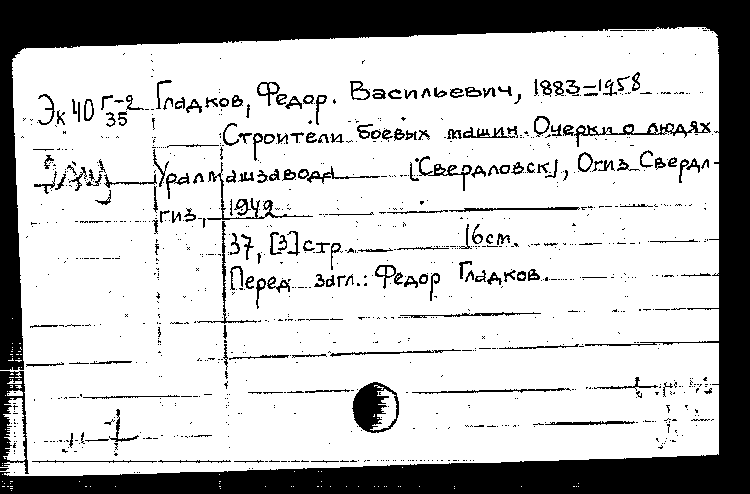 Эк 40 Г-2 Гладков, Федор. Васильевич, 1883=1958
35
Строители боевых машин. Очерки о людях
Уралмашзавода [Свердловск], Огиз Свердл-
гиз, 1942.
37, [3] стр. 16 cm.
Перед загл.: Федор Гладков.